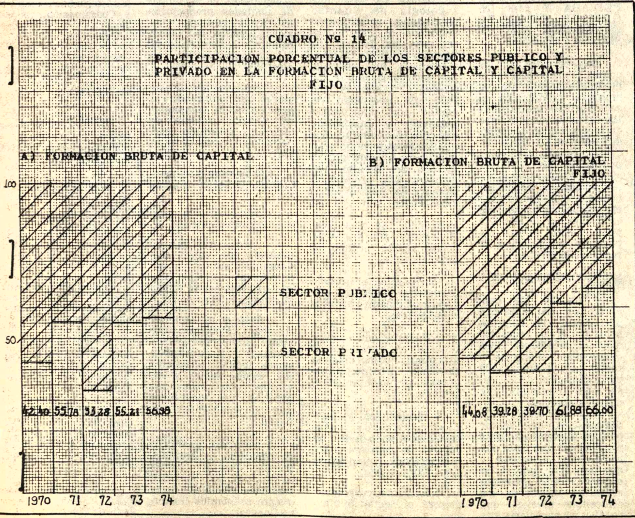 CUADRO Nº 14
PARTICIPACION PORCENTUAL DE LOS SECTORES PUBLICO Y
PRIVADO EN LA FORMACION BRUTA DE CAPITAL Y CAPITAL
FIJO
A) FORMACION BRUTA DE CAPITAL
B) FORMACION BRUTA DE CAPITAL
FIJO
100
50
SECTOR PUBLICO
SECTOR PRIVADO
42.40 55.78 33.28 55.21 56.98
44.08 39.28 39.70 61.88 66.00
1970 71 72 73 74
1970 71 72 73 74